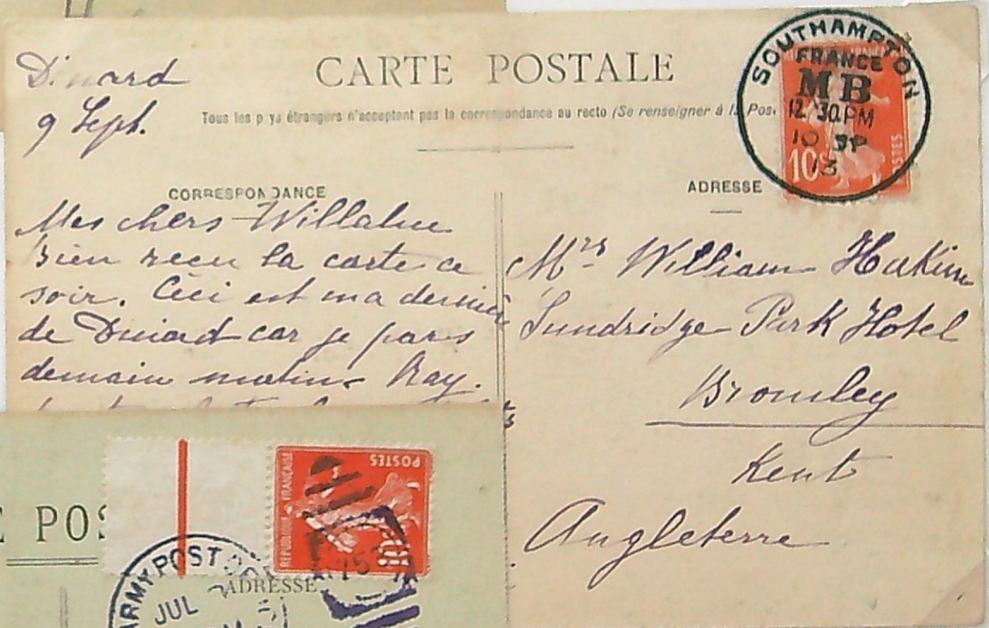 Dinard
9 Sept.
CARTE POSTALE
Tous les pays étrangers n'acceptent pas la correspondance au recto (Se renseigner à la Pos
SOUTHAMPTON
FRANCE
MB
12.30PM
10 SP
13
10
POSTES
CORRESPONDANCE
Mes chers
Bien recu la carte ce
soir. Ceci est ma dernière
de Dinard car je pars
demain matin
ADRESSE
Mrs William
Sundridge Park Hotel
Bromley
Kent
Angleterre
E POS
REPUBLIQUE FRANÇAISE
POSTES
10
ARMY POST
JUL
ADRESSE